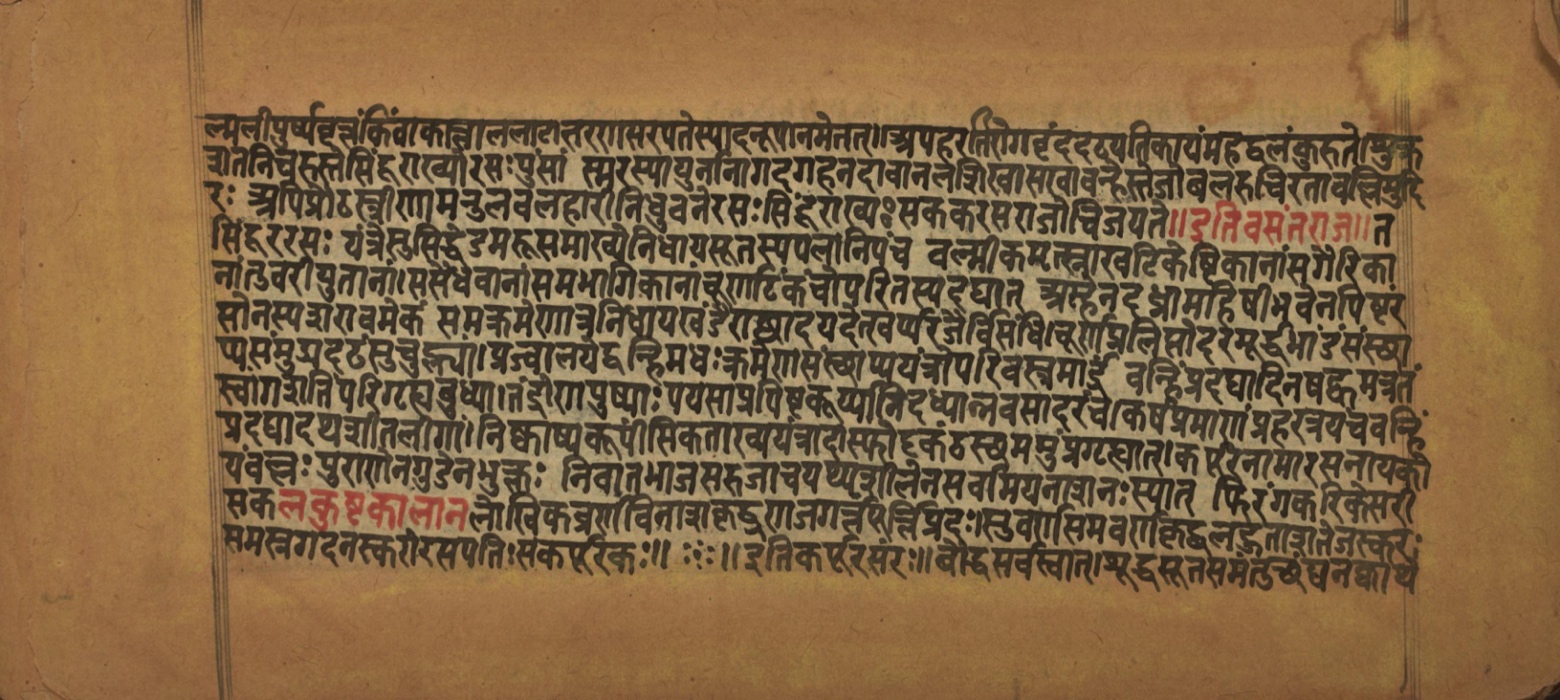 ल्मलीपुर्ष्यवृन्नंकिंवाकान्नालललाटान्तरगासरपतेस्यादनूपानमेतत्॥अपहरातिरोगवृंदंदृढयतिकायंमहद्बलंकुरुते।शुक्र
शतनिचसूस्तेसिंदूराख्योरसःपुंसां स्मरस्यायुर्नानागदगहनदावानलशिखासखावन्हेस्तेजोबलरुचिरतावल्लिमुदि
रः अपिप्रौटस्त्रीणामतुलबलहारीनिधुवनेरसःसिंदूराख्यःसकलरसराजोविजयते॥इतिवसंतराज॥त
सिंदूररसः यंत्रेसुसिद्धेडमरूसमाख्येनिधायसूतस्यपलानिपंच वल्मीकमृत्स्नाखटिकेष्टिकानांसगैरिका
नांतुवरीयुतानां।ससैंधवानांसमभागिकानांचूर्णाटंकंचोपरितस्यदद्यात् अह्नेनदध्नामहिषीभवेनपिष्टर
सोनस्यशरावमेकं समक्रमेणात्रनिधायखंडैराछादयेदेतवर्प्परजैर्विसंधि।चूर्णप्रलिप्तोदरमूर्द्धभांडंसंस्था
प्यसंमुद्र्यदृढंसुचुल्ह्यां।प्रज्वालयेद्वन्हिमधःक्रमेणसंस्थाप्ययंत्रोपरिवस्त्रमार्द्रं वन्हिंप्रदद्याद्दिनषट्कमत्रतं
स्वांगशीतंपरिगृह्यबुध्या।तंद्रोणपुष्पाःपयसाप्रपिष्टकूप्यांनिदध्याल्लवसादरंच।कर्षप्रमाणंप्रहरत्रयंचवन्हिं
प्रदद्यादथशीतलांगां।निष्काष्यकूपींसिकताख्ययंत्रादास्फोट्यकंठस्थममुंप्रगृह्यात्।कर्पूरनामारसनायको
यंवल्लः पुराणेनगुडेनभुक्तः निवातभाजसहजाचपथ्यशीलेनसर्वामयनाशनःस्यात् फिरंगकरिकेसरी
सकलकुष्टकालानलोखिलव्रणविनाशकृद्व्रणजगर्त्तपूर्त्तिप्रदः।सुवर्णसमवर्णकृद्बलहुताशतेजस्करः
समस्तगदनस्करोरसपतिःसकर्पूरकः॥ ॥इतिकर्पूरसरः॥बौद्धसर्वस्वात्।शुद्धसूतसमंतुच्छंघनक्वाथं